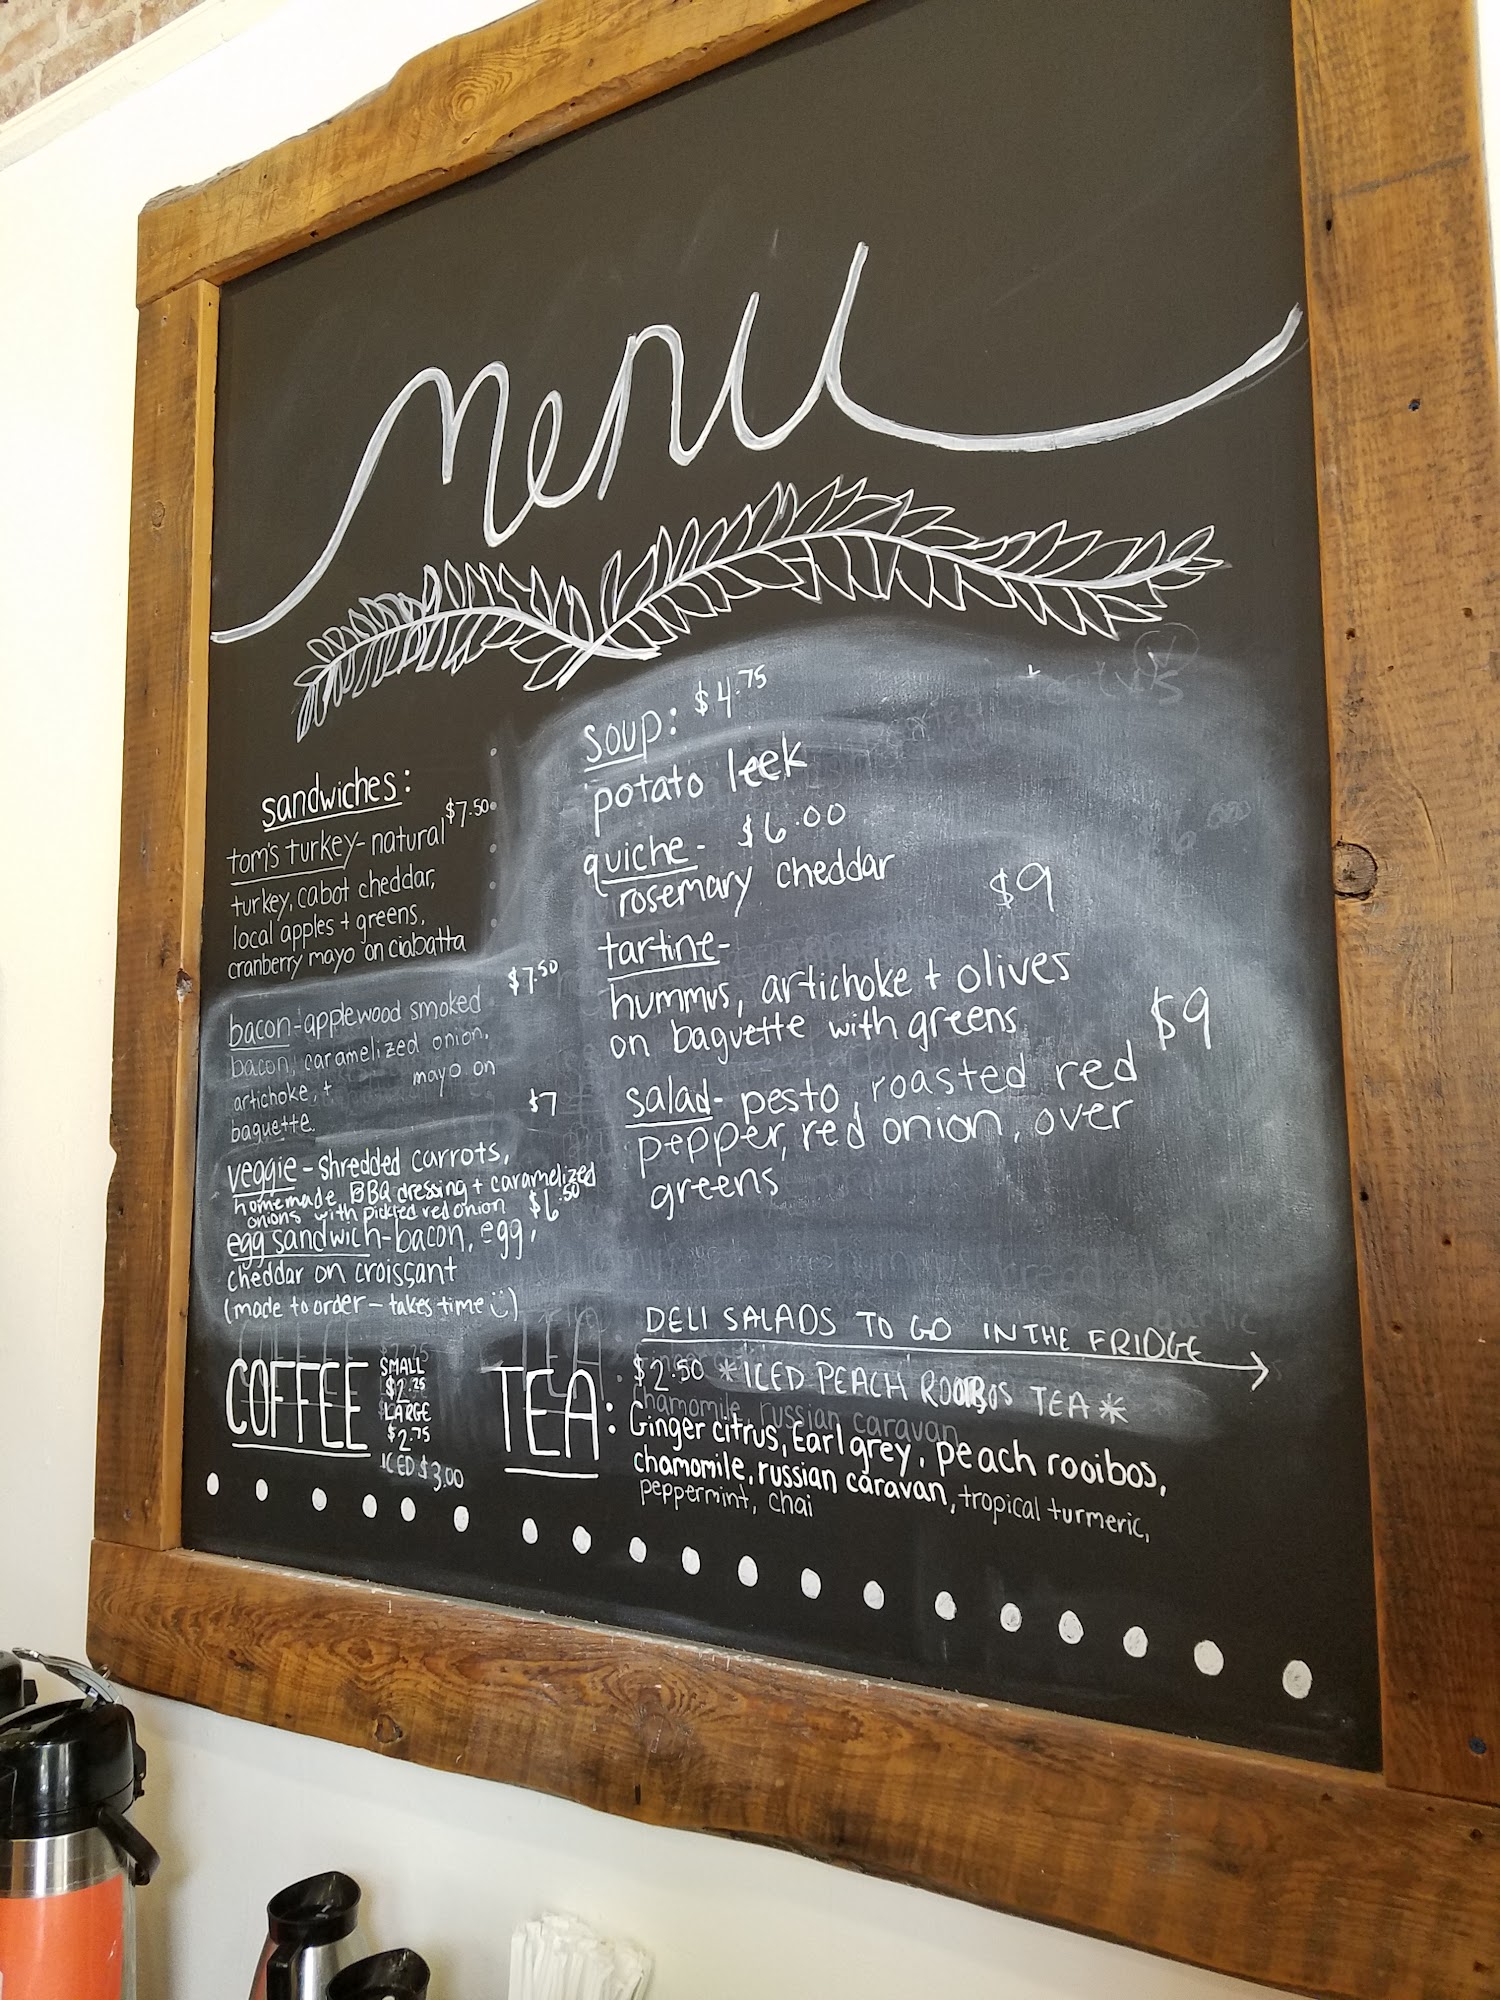 menu
sandwiches:
tom's turkey - natural $7.50
turkey, cabot cheddar,
local apples + greens,
cranberry mayo on ciabatta
$7.50
bacon - applewood smoked
bacon, caramelized onion,
artichoke, + mayo on
baguette.
$7
veggie - shredded carrots,
homemade BBQ dressing + caramelized
onions with pickled red onion $6.50
egg sandwich - bacon, egg,
cheddar on croissant
(made to order - takes time :))
soup: $4.75
potato leek
quiche - $6.00
rosemary cheddar
$9
tartine -
hummus, artichoke + olives
on baguette with greens
$9
salad - pesto, roasted red
pepper, red onion, over
greens
DELI SALADS TO GO IN THE FRIDGE
COFFEE
SMALL
$2.25
LARGE
$2.75
ICED $3.00
TEA:
$2.50 *ICED PEACH ROOIBOS TEA*
chamomile, russian caravan
Ginger citrus, Earl grey, peach rooibos,
chamomile, russian caravan, tropical turmeric,
peppermint, chai